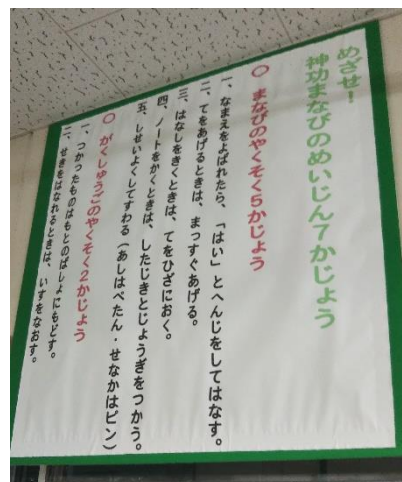 めざせ!
神功まなびのめいじん7かじょう
○ まなびのやくそく5かじょう
一、なまえをよばれたら、「はい」とへんじをしてはなす。
二、てをあげるときは、まっすぐあげる。
三、はなしをきくときは、てをひざにおく。
四、ノートをかくときは、したじきとじょうぎをつかう。
五、しせいよくしてすわる(あしはぺたん・せなかはピン)
○ がくしゅうごのやくそく2かじょう
一、つかったものはもとのばしょにもどす。
二、せきをはなれるときは、いすをなおす。